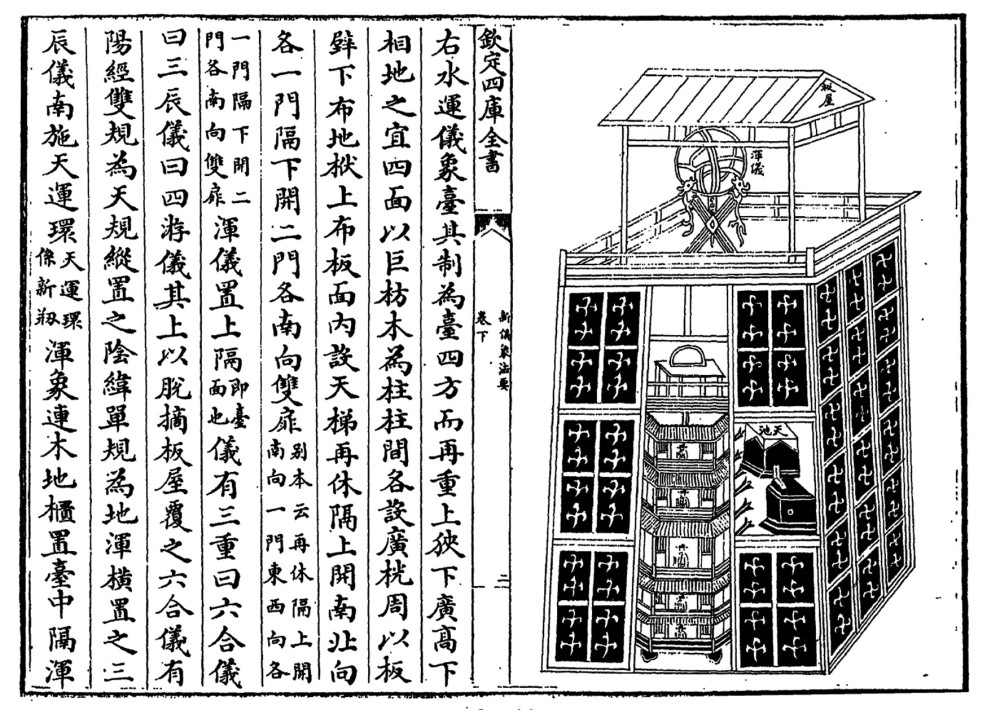 板屋
渾儀
天池
欽定四庫全書
新儀象法要
卷下
二
右水運儀象臺其制為臺四方而再重上狹下廣髙下
相地之宜四面以巨枋木為柱柱間各設廣桄周以板
壁下布地栿上布板面内設天梯再休隔上開南北向
各一門隔下開二門各南向雙扉别本云再休隔上開南向一門東西向各
一門隔下開二門各南向雙扉渾儀置上隔即臺面也儀有三重曰六合儀
曰三辰儀曰四游儀其上以脫摘板屋覆之六合儀有
陽經雙規為天規縱置之陰緯單規為地渾橫置之三
辰儀南施天運環天運環係新剏渾象連木地櫃置臺中隔渾